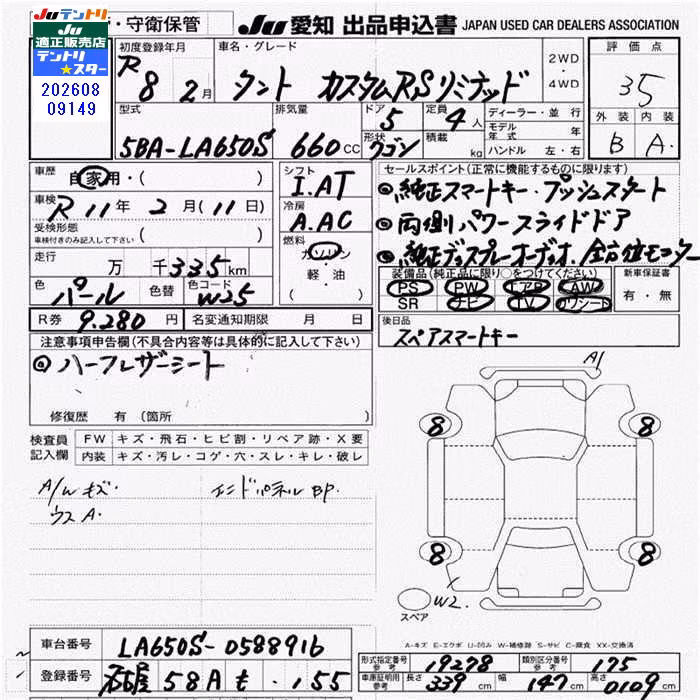 Ju テントリ
適正販売店
テントリ
★スター
202608
09149
・守衛保管
Ju 愛知 出品申込書 JAPAN USED CAR DEALERS ASSOCIATION
初度登録年月
R 8 2月
車名・グレード
タント カスタムRSリミテッド
2WD
・
4WD
評価点
3.5
外装 内装
B A
型式
5BA-LA650S
排気量
660 CC
ドア
5
定員
4 人
形状
ワゴン
積載
kg
ディーラー・並行
モデル年式 年
ハンドル 左・右
車歴 自家用・( )
車検 R 11年 2月(11日)
受検形態
車検付きのみ記入して下さい ( )
走行 万 千335km
色 パール 色替 色コード W25
シフト
I.AT
冷房
A.AC
燃料
ガソリン
・
軽・油
( )
R券 9.280円 名変通知期限 月 日
セールスポイント(正常に機能するものに限ります)
◎純正スマートキー・プッシュスタート
◎両側パワースライドドア
◎純正ディスプレーオーディオ、全方位モニター
装備品(純正品に限り○をつけてください)
PS PW エアB AW
SR ナビ TV カワシート
新車保証書
有・無
後日品
スペアスマートキー
注意事項申告欄(不具合内容等は具体的に記入して下さい)
◎ハーフレザーシート
修復歴 有(箇所 )
検査員
記入欄
FW キズ・飛石・ヒビ割・リペア跡・X要
内装 キズ・汚レ・コゲ・穴・スレ・キレ・破レ
A/W キズ. インドパネル BP.
ウス A.
A1
8 8
8 8
W2.
スペア
A-キズ E-エクボ U-凹み W-補修跡 S-サビ C-腐食 XX-交換済
車台番号 LA650S-0588916
登録番号 名古屋 58A も・155
形式指定番号
参考
19278
類別区分番号
参考
175
車庫証明用
参考
長さ 339cm 幅 147cm 高さ 0109cm